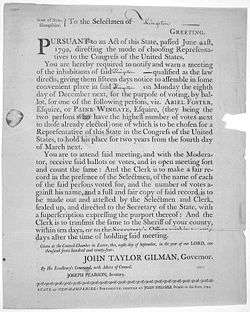 State of New-
Hampshire. } To the Selectmen of
GREETING.
PURSUANT to an Act of this State, passed June
directing the mode of choosing Representatives
to the Congress of the United States.
You are hereby required to notify and warn a meeting
of the inhabitants of said qualified as the law
directs, giving them fifteen days notice to assemble in some
convenient place in said on Monday the eighth
day of next, for the purpose of voting, by ballot,
for one of the following persons, viz. ABIEL FOSTER,
Esquire, or PAINE WINGATE, Esquire, (they being the
two persons who have the highest number of votes next
to those already elected) one of which is to be chosen for a
Representative of this State in the Congress of the United
States, to hold his place for two years from the fourth day
of March next.
You are to attend said meeting, and with the Moderator,
receive said ballots or votes, and in open meeting sort
and count the same: And the Clerk is to make a fair record
in the presence of the Selectmen, of the name of each
of the said persons voted for, and the number of votes against
his name, and a full and fair copy of said record is to
be made out and attested by the Selectmen and Clerk,
sealed up, and directed to the Secretary of State, with
a superscription expressing the purport thereof: And the
Clerk is to transmit the same to the Sheriff of your county,
within ten days, or to the Secretary's Office within
days after the time of holding said meeting.
Given at the Council-Chamber in Exeter, this day of September, in the year of our LORD, one
thousand seven hundred and ninety-
JOHN TAYLOR GILMAN, Governor.
By His Excellency's Command, with Advice of Council.
JOSEPH PEARSON, Secretary.